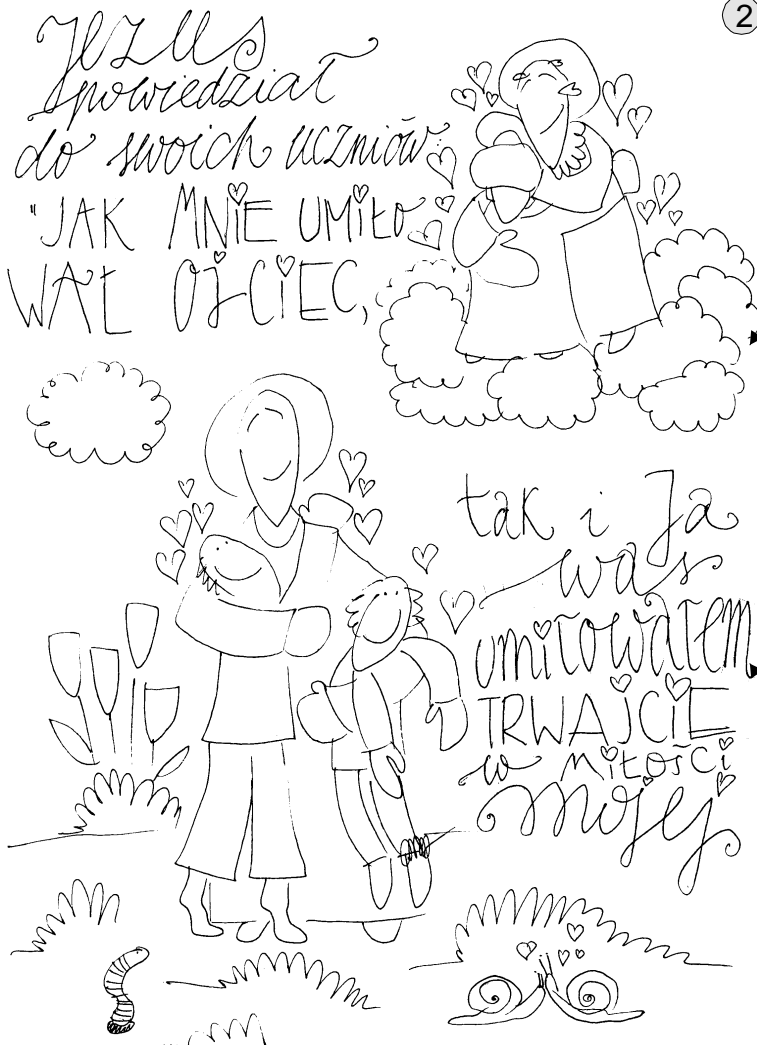 2
JEZUS
powiedział
do swoich uczniów:
"JAK MNiE UMiŁO
WAŁ OJCiEC,
tak i Ja
was
umiłowałem.
TRWAJCiE
w MiŁOŚCi
mojej